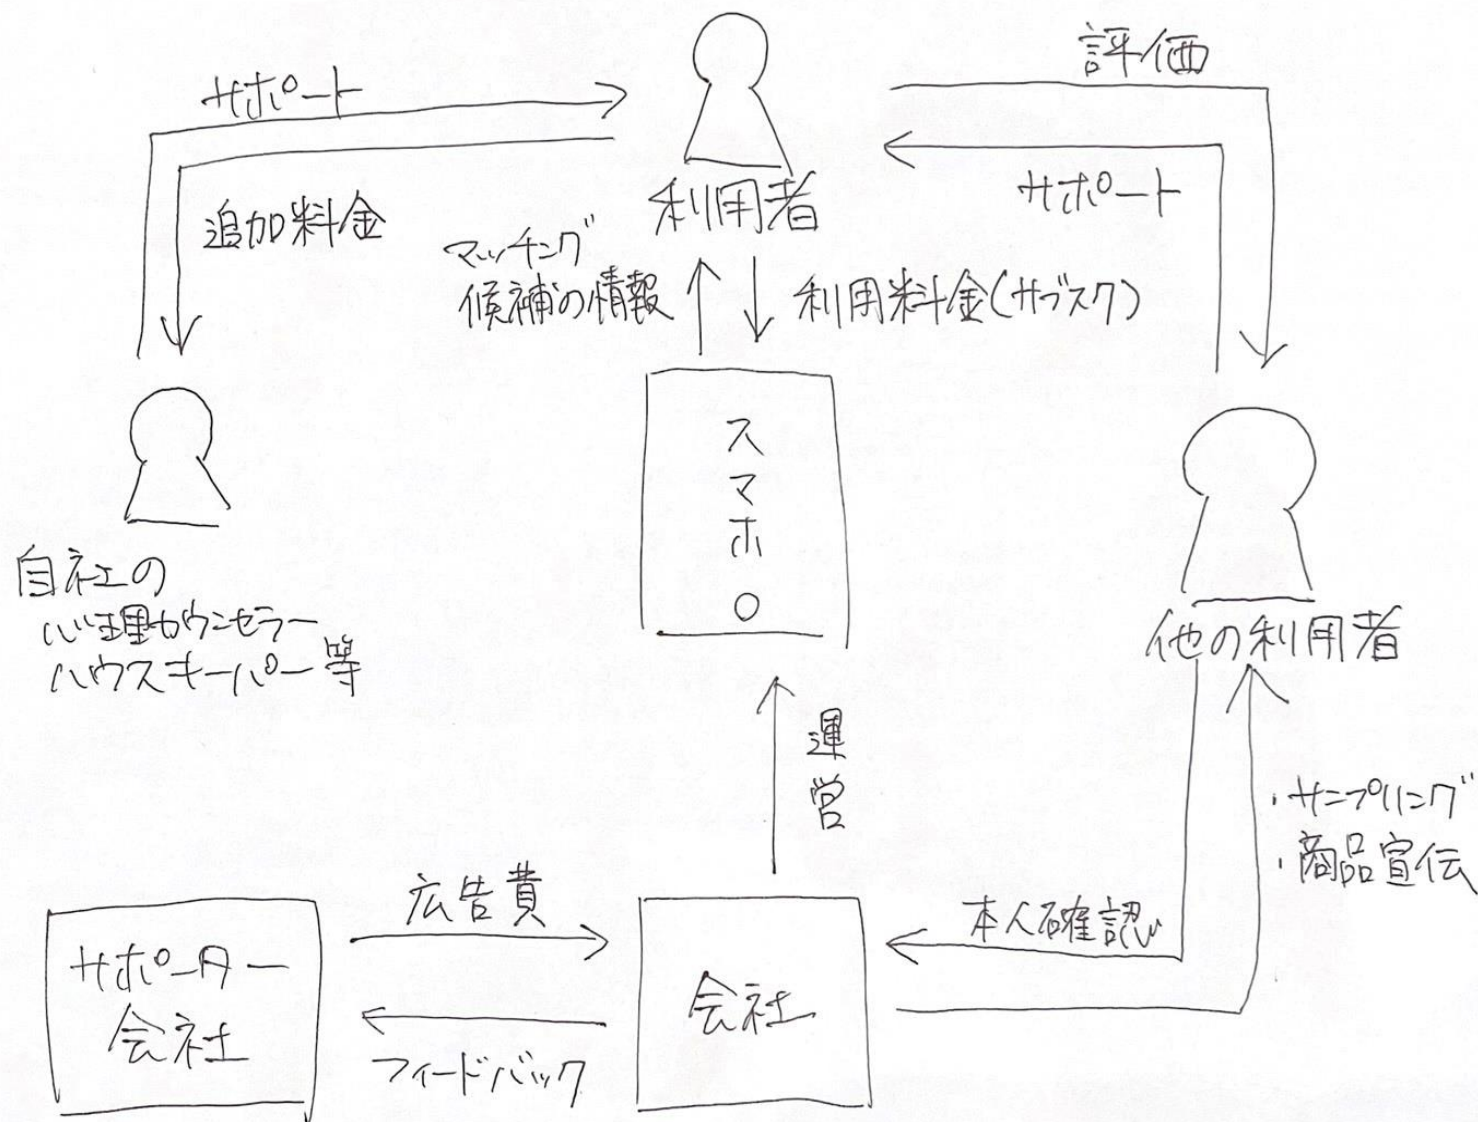 評価
サポート
利用者
サポート
追加料金
マッチング
候補の情報
利用料金(サブスク)
スマホ
自社の
心理カウンセラー
ハウスキーパー等
他の利用者
運営
・サンプリング
・商品宣伝
広告費
本人確認
サポーター
会社
会社
フィードバック